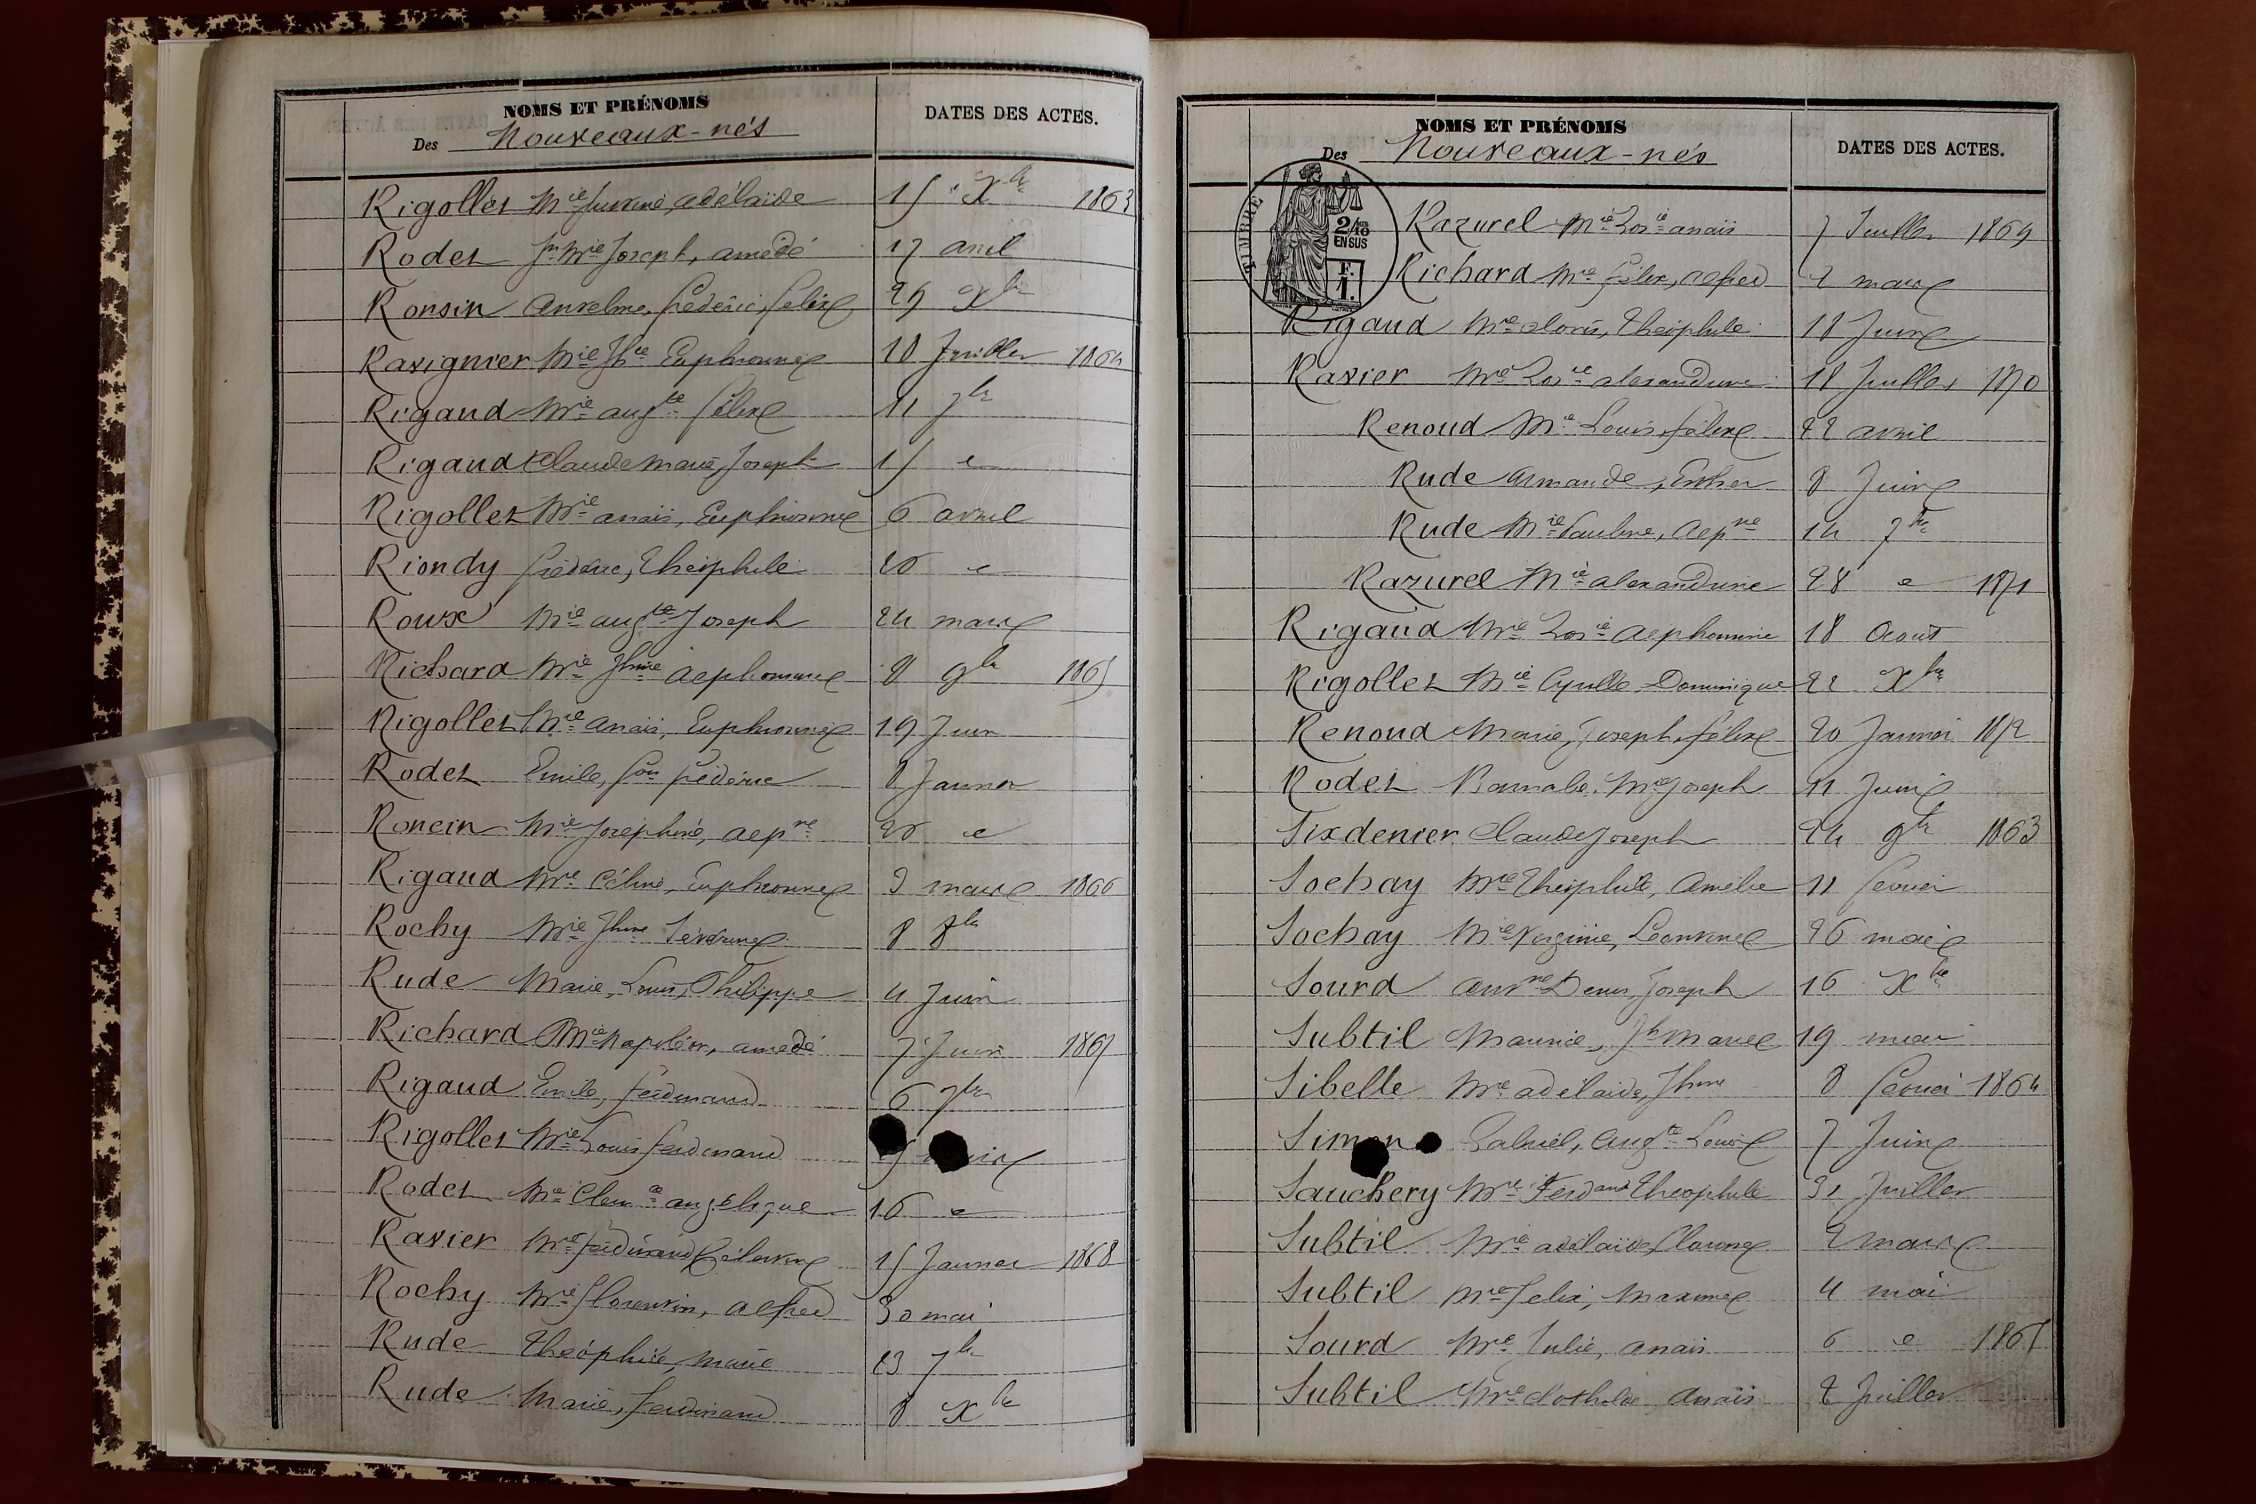 NOMS ET PRÉNOMS
Des Nouveaux-nés
DATES DES ACTES.
Rigollet Mie Justine, adélaïde 15 Xbre 1863
Rodet Jn Mie Joseph, amédé 17 avril
Ronsin Anselme, frédéric, félix 25 Xbre
Ravignier Mie Jhte Euphrosine 10 Juillet 1864
Rigaud Mie augte félix 11 7bre
Rigaud Claude Marie, Joseph 15 e
Rigollet Mie anaïs, Euphrosine 6 avril
Riondy frédéric, Théophile 20 e
Roux Mie augte Joseph 24 mars
Richard Mie Jhine alphonsine 8 9bre 1865
Rigollet Mie anaïs, Euphrosine 19 Juin
Rodet Emile, frédéric 8 Janvier
Roncin Mie Joséphine, alpne 20 e
Rigaud Mie Céline, Euphrosine 3 mars 1866
Rochy Mie Jhine Séverine 8 8bre
Rude Marie, Louis, Philippe 4 Juin
Richard Mie Napoléon, amédé 7 Juin 1867
Rigaud Emile, ferdinand 6 7bre
Rigollet Mie Louis ferdinand
Rodet Mie Clemce angélique 16 e
Ravier Mie ferdinand Célestin 15 Janvier 1868
Rochy Mie Florentin, alfred 30 mai
Rude Théophile, Marie 23 7bre
Rude Marie, ferdinand 8 Xbre
NOMS ET PRÉNOMS
Des Nouveaux-nés
DATES DES ACTES.
TIMBRE
2/10
EN SUS
F.
1.
Razurel Mie anaïs 7 Juillet 1869
Richard Mie félix, alfred 2 mars
Rigaud Mie clovis, Théophile 18 Juin
Ravier Mie alexandrine 18 Juillet 1870
Renoud Mie Louis, félix 22 avril
Rude Armande, Esther 8 Juin
Rude Mie Pauline, alpne 14 7bre
Razurel Mie alexandrine 28 e 1871
Rigaud Mie alphonsine 18 Août
Rigollet Mie Cyrille Dominique 22 Xbre
Renoud Marie, Joseph, félix 20 Janvier 1872
Rodet Barnabé, Mie Joseph 11 Juin
Sixdenier Claude Joseph 24 9bre 1863
Sochay Mie Théophile, Amélie 11 février
Sochay Mie Virginie, Léontine 26 mai
Sourd Denis, Joseph 16 Xbre
Subtil Maurice, Jh Marie 19 mai
Sibelle Mie adélaïde, Jhine 8 février 1864
Simon Gabriel, Augte Louis 7 Juin
Sauchery Mie Ferdand Théophile 31 Juillet
Subtil Mie adélaïde, Claurine 2 mars
Subtil Mie félix, Maxime 4 mai
Sourd Mie Julie, anaïs 6 e 1865
Subtil Mie clothilde anaïs 2 Juillet